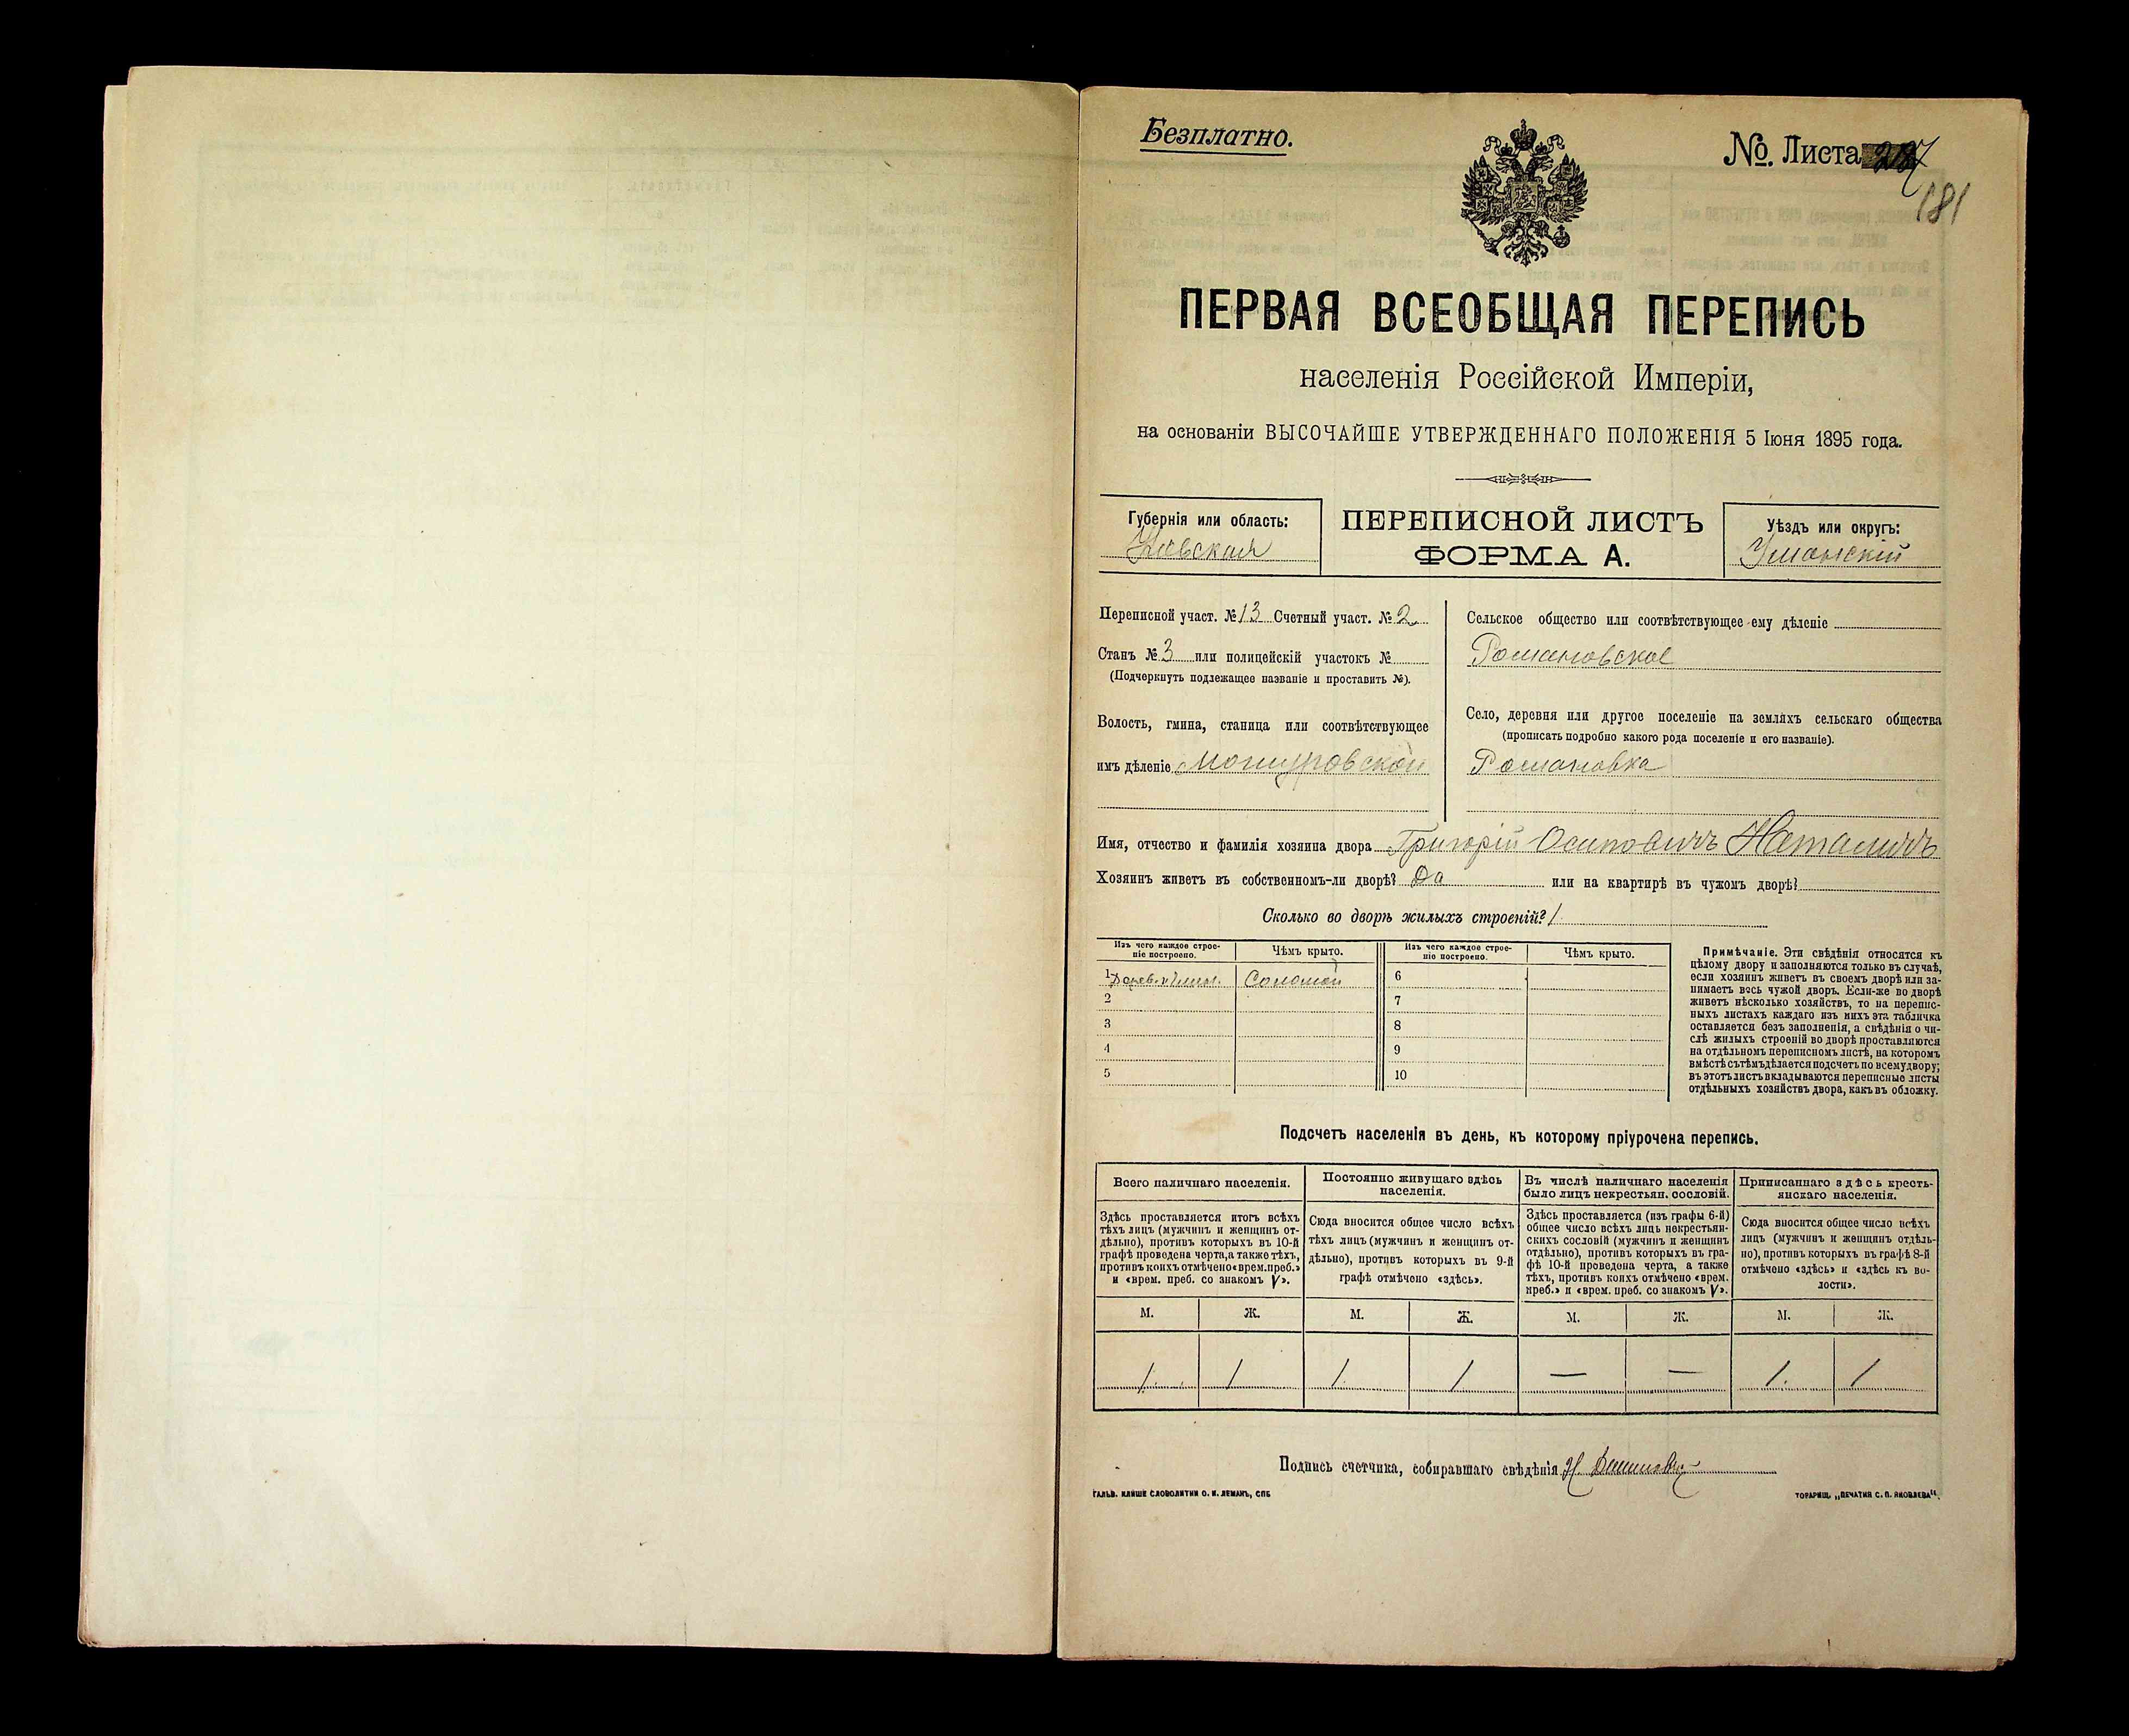 Безплатно.
№. Листа
181
ПЕРВАЯ ВСЕОБЩАЯ ПЕРЕПИСЬ
населенія Россійской Имперіи,
на основаніи ВЫСОЧАЙШЕ УТВЕРЖДЕННАГО ПОЛОЖЕНІЯ 5 Іюня 1895 года.
Губернія или область:
Кіевская
ПЕРЕПИСНОЙ ЛИСТЪ
ФОРМА А.
Уѣздъ или округъ:
Уманскій
Переписной участ. № 13 Счетный участ. № 2
Станъ № 3 или полицейскій участокъ №
(Подчеркнуть подлежащее названіе и проставить №).
Волость, гмина, станица или соотвѣтствующее
имъ дѣленіе
Сельское общество или соотвѣтствующее ему дѣленіе
Романовское
Село, деревня или другое поселеніе на земляхъ сельскаго общества
(прописать подробно какого рода поселеніе и его названіе).
Романовка
Имя, отчество и фамилія хозяина двора Григорій Осиповичъ
Хозяинъ живетъ въ собственномъ-ли дворѣ? Да или на квартирѣ въ чужомъ дворѣ?
Сколько во дворѣ жилыхъ строеній? 1
Изъ чего каждое строе-
ніе построено.
Чѣмъ крыто.
Изъ чего каждое строе-
ніе построено.
Чѣмъ крыто.
1 Соломой 6
2 7
3 8
4 9
5 10
Примѣчаніе. Эти свѣдѣнія относятся къ
цѣлому двору и заполняются только въ случаѣ,
если хозяинъ живетъ въ своемъ дворѣ или за-
нимаетъ весь чужой дворъ. Если-же во дворѣ
живетъ нѣсколько хозяйствъ, то на перепис-
ныхъ листахъ каждаго изъ нихъ эта табличка
оставляется безъ заполненія, а свѣдѣнія о чи-
слѣ жилыхъ строеній во дворѣ проставляются
на отдѣльномъ переписномъ листѣ, на которомъ
вмѣстѣ съ тѣмъ дѣлается подсчетъ по всему двору;
въ этотъ листъ вкладываются переписные листы
отдѣльныхъ хозяйствъ двора, какъ въ обложку.
Подсчетъ населенія въ день, къ которому пріурочена перепись.
Всего наличнаго населенія.
Здѣсь проставляется итогъ всѣхъ
тѣхъ лицъ (мужчинъ и женщинъ от-
дѣльно), противъ которыхъ въ 10-й
графѣ проведена черта, а также тѣхъ,
противъ коихъ отмѣчено «врем. преб.»
и «врем. преб. со знакомъ V».
Постоянно живущаго здѣсь
населенія.
Сюда вносится общее число всѣхъ
тѣхъ лицъ (мужчинъ и женщинъ от-
дѣльно), противъ которыхъ въ 9-й
графѣ отмѣчено «здѣсь».
Въ числѣ наличнаго населенія
было лицъ некрестьян. сословій.
Здѣсь проставляется (изъ графы 6-й)
общее число всѣхъ лицъ некрестьян-
скихъ сословій (мужчинъ и женщинъ
отдѣльно), противъ которыхъ въ гра-
фѣ 10-й проведена черта, а также
тѣхъ, противъ коихъ отмѣчено «врем.
преб.» и «врем. преб. со знакомъ V».
Приписаннаго здѣсь кресть-
янскаго населенія.
Сюда вносится общее число всѣхъ
лицъ (мужчинъ и женщинъ отдѣль-
но), противъ которыхъ въ графѣ 8-й
отмѣчено «здѣсь» и «здѣсь къ во-
лости».
М. Ж. М. Ж. М. Ж. М. Ж.
1 1 1 1 — — 1 1
Подпись счетчика, собиравшаго свѣдѣнія
ГАЛЬВ. КЛИШЕ СЛОВОЛИТНИ О. И. ЛЕМАНЪ, СПБ
ТОВАРИЩ. „ПЕЧАТНЯ С. П. ЯКОВЛЕВА“.